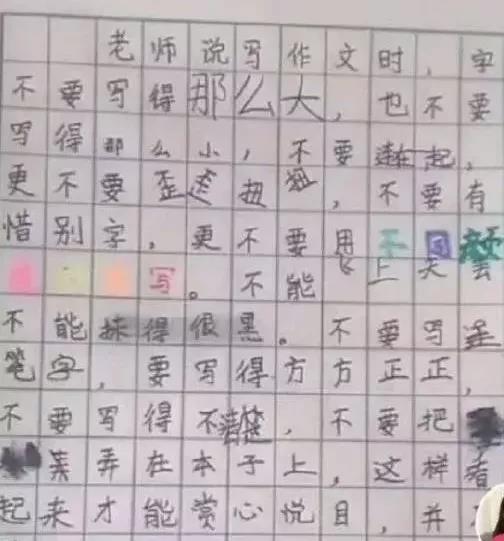 老师说写作文时，字
不要写得那么大，也不要
写得那么小，不要连在一起，
更不要歪歪扭扭，不要有
惜别字，更不要用不同
写。不能飞上天去
不能抹得很黑。不要写连
笔字，要写得方方正正，
不要写得不清楚，不要把
弄在本子上，这样看
起来才能赏心悦目，并